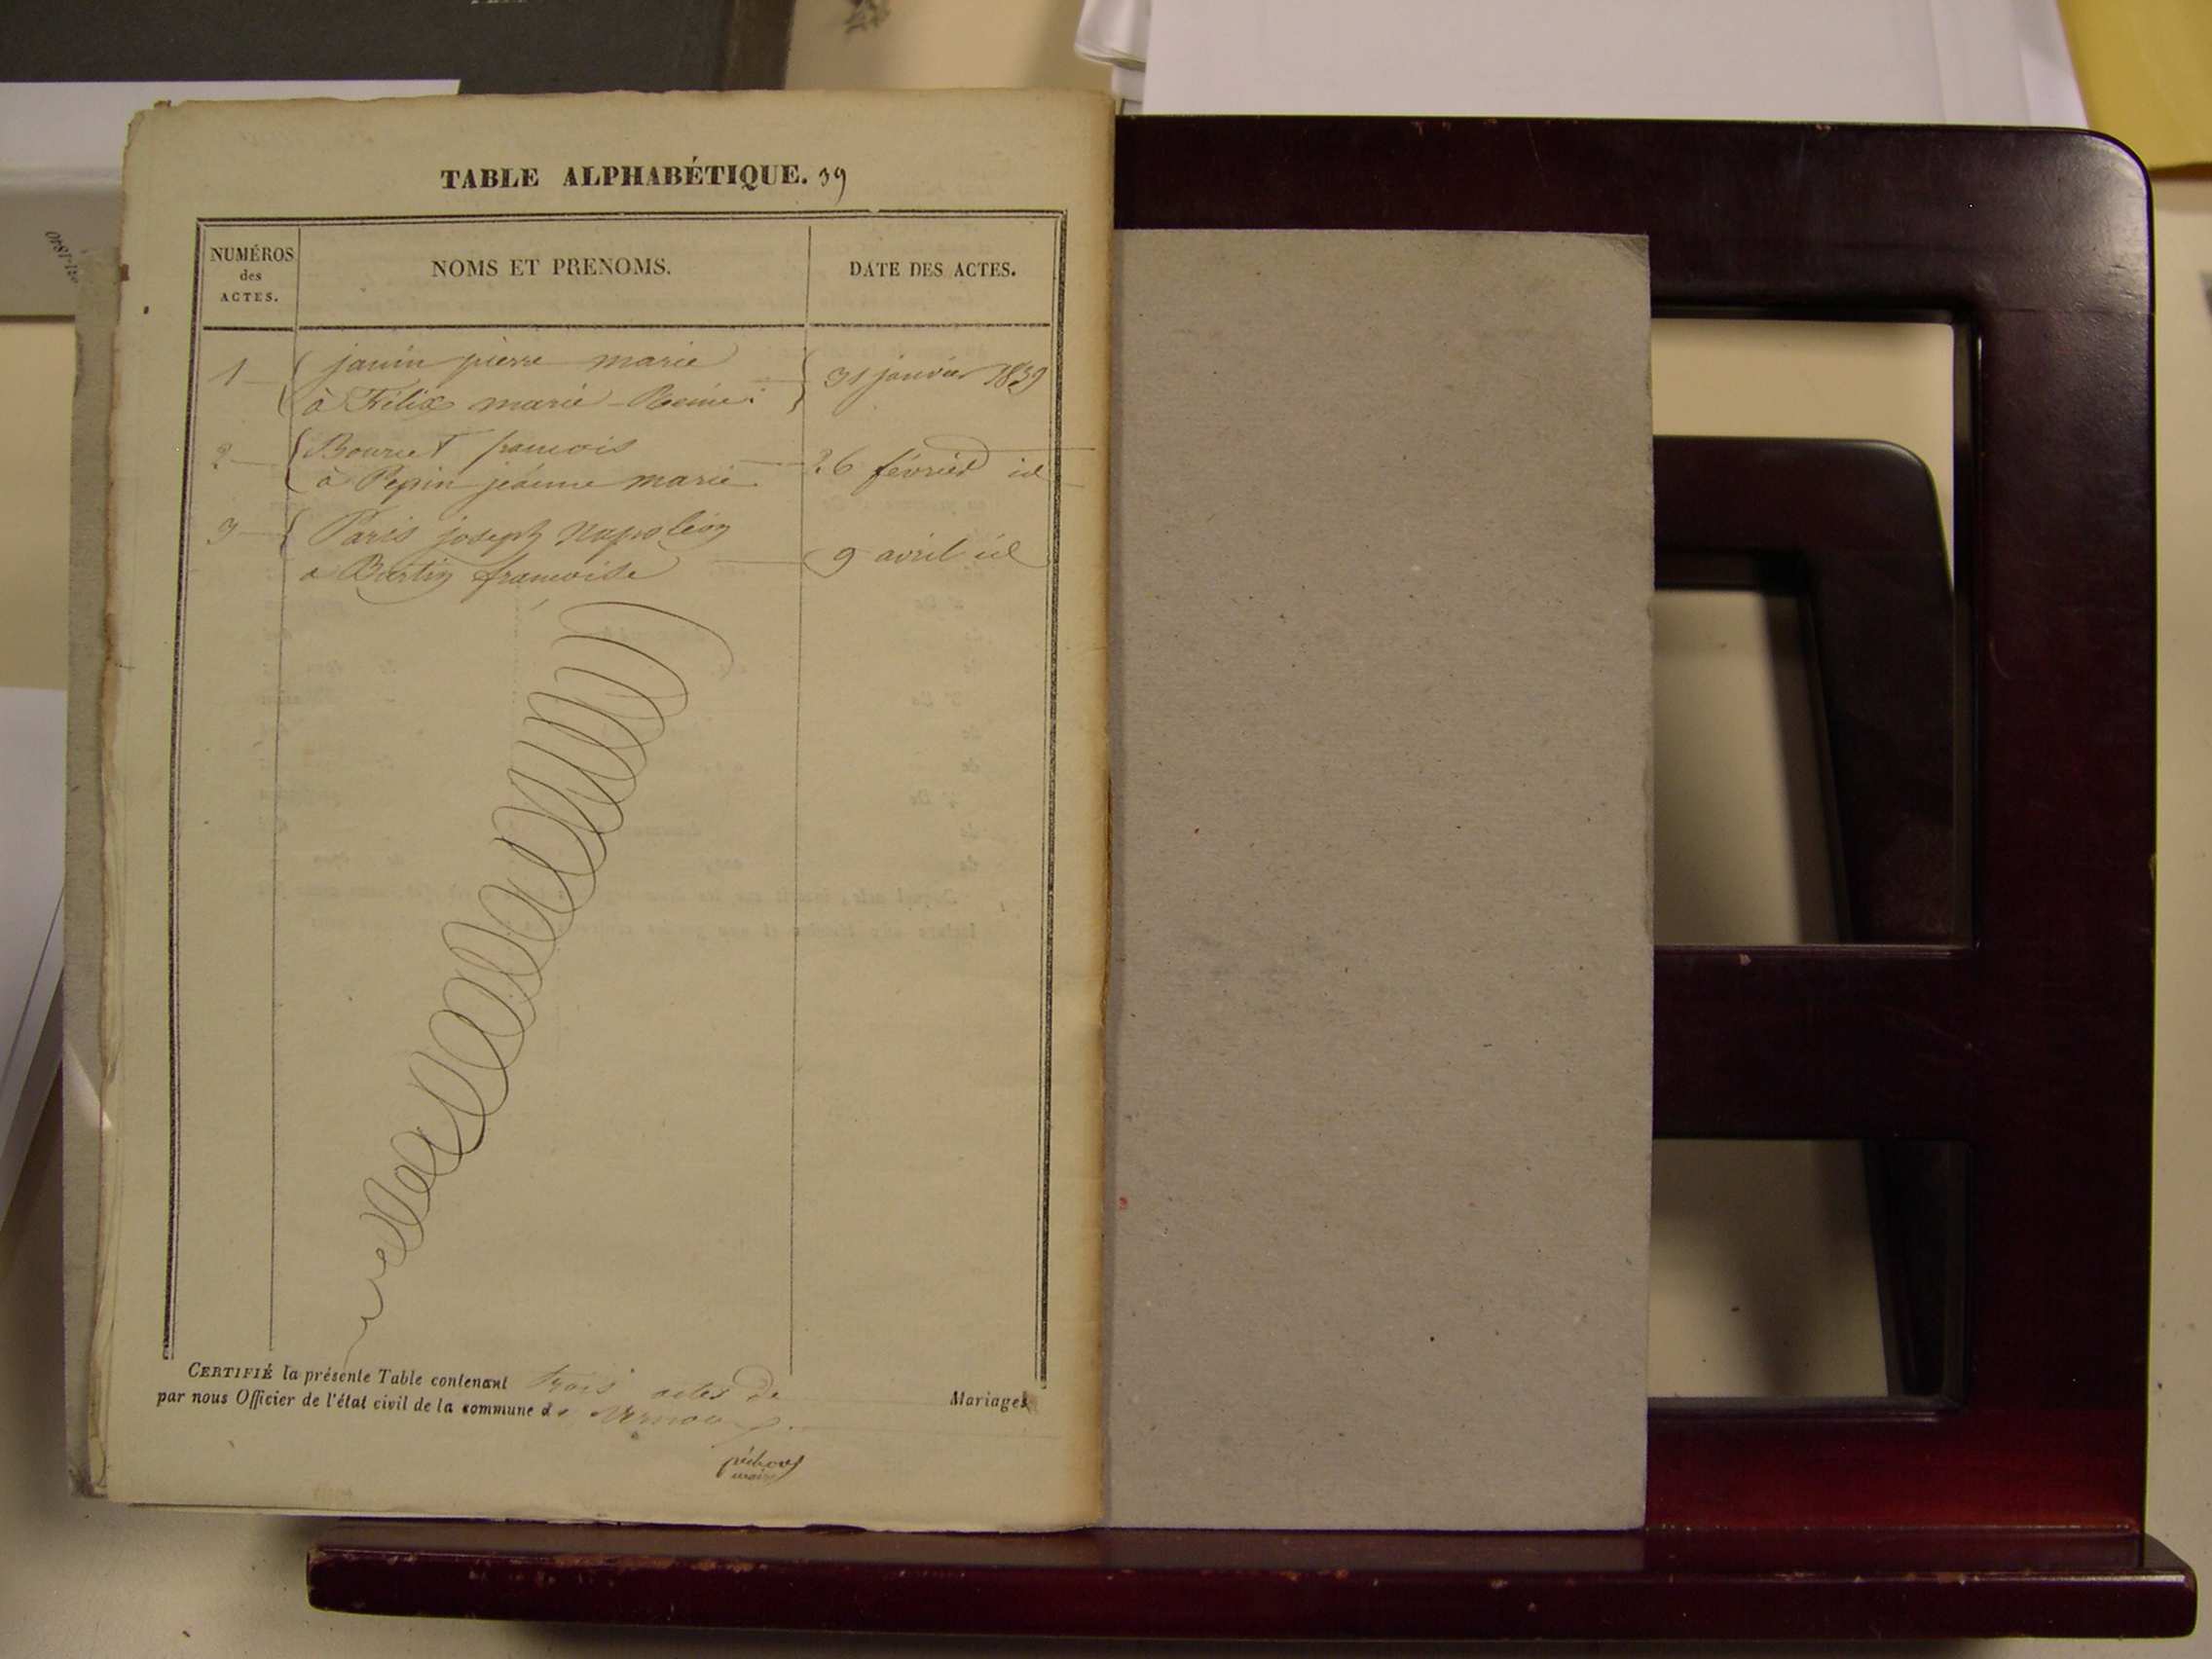 TABLE ALPHABÉTIQUE. 39
NUMÉROS
des
ACTES.
NOMS ET PRENOMS.
DATE DES ACTES.
1 janin pierre marie
à Félix marie Reine 31 janvier 1839
2 Bourret francois
à Pepin jeanne marie 26 février id
3 Paris joseph Napoléon
a Bertin francoise 9 avril id
CERTIFIÉ la présente Table contenant trois actes de Mariages
par nous Officier de l'état civil de la commune de
maire